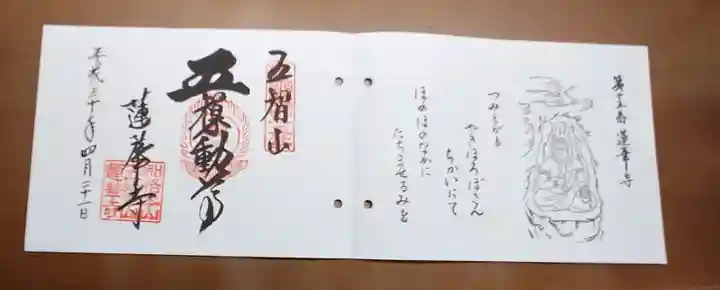 第十五番 蓮華寺
つみとがも
やきほろぼさん
ちかいにて
ほのほのなかに
たちませるみを
五智山
蓮華寺
平成三十年四月二十一日